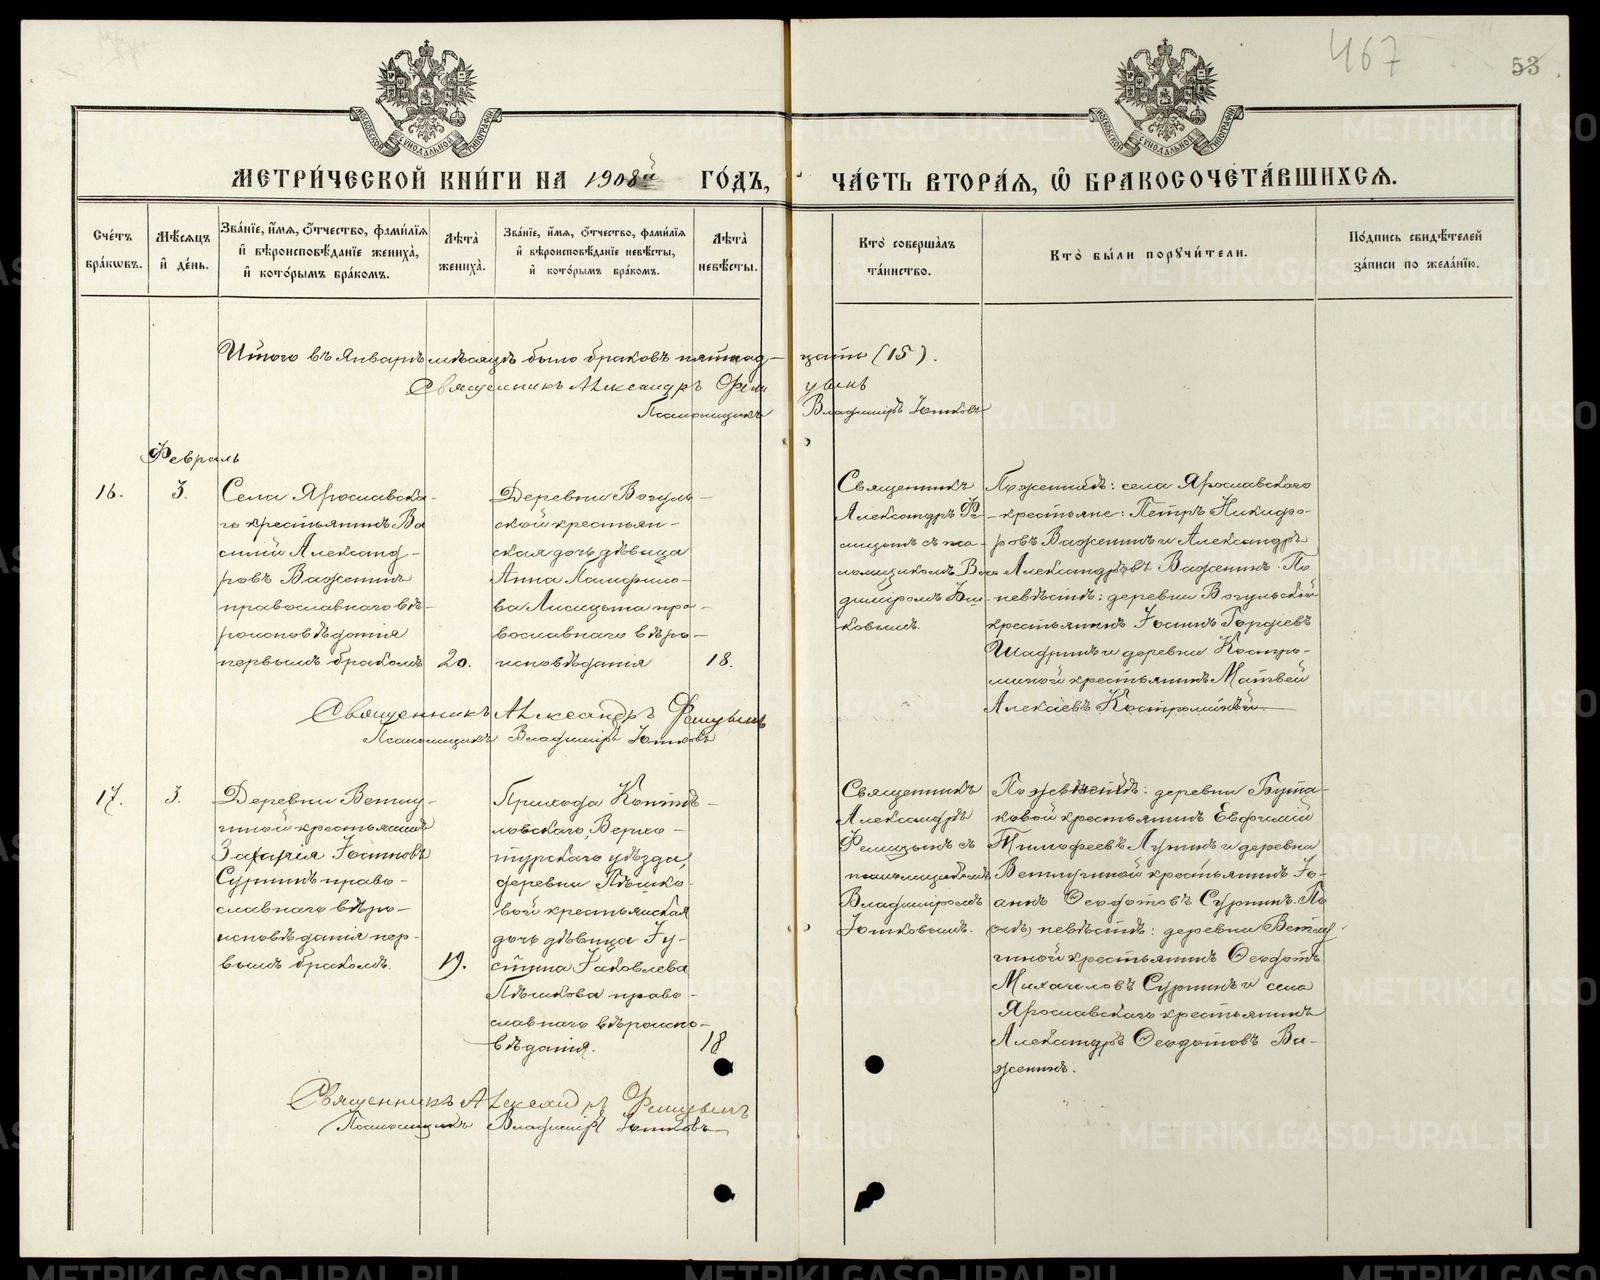 467
53
МЕТРИ́ЧЕСКОЙ КНИ́ГИ НА 1908й ГО́ДЪ,
ЧА́СТЬ ВТОРА́Я, Ѿ БРАКОСОЧЕТА́ВШИХСЯ.
Сче́тъ бра́кѡвъ.
Мѣ́сяцъ и҆ де́нь.
Зва́нїе, и҆́мя, ѻ҆́тчество, фами́лїя и҆ вѣроисповѣ́данїе жениха̀, и҆ кото́рымъ бра́комъ.
Лѣ́та̀ жениха̀.
Зва́нїе, и҆́мя, ѻ҆́тчество, фами́лїя и҆ вѣроисповѣ́данїе невѣ́сты, и҆ кото́рымъ бра́комъ.
Лѣ́та̀ невѣ́сты.
Кто̀ соверша́лъ та́инство.
Кто̀ бы́ли порꙋчи́тели.
По́дпись свидѣ́телей за́писи по жела́нїю.
Итого въ Январѣ мѣсяцѣ было браковъ пятнад-цать (15).
Священникъ Александръ
Псаломщикъ Владимiръ Ютковъ
Февраль
16.
3.
Села Ярославска-
го крестьянинъ Ва
силiй Александ-
ровъ Важенинъ
православнаго вѣ-
роисповѣданiя
первымъ бракомъ
20.
Деревни Вогуль-
ской крестьян-
ская дочь дѣвица
Анна Памфило-
ва Лисицына пра-
вославнаго вѣро-
исповѣданiя
18.
Священникъ
Александръ
псаломщикомъ
ковымъ.
По женихѣ: села Ярославского
крестьяне: Петръ Никифо-
ровъ Важенинъ и Александръ
Александровъ Важенинъ. По
невѣстѣ: деревни Вогульской
крестьянинъ Iоаннъ Гордѣевъ
Шадринъ и деревни Костро-
миной крестьянинъ Матвей
Алексѣевъ
Священникъ Александръ
Псаломщикъ Владимiръ Ютковъ
17.
3.
Деревни Ветлу-
гиной крестьянинъ
Захарiя Iоанновъ
Суринъ право-
славнаго вѣро-
исповѣданiя пер-
вымъ бракомъ.
19.
Прихода
ловскаго, Верхо-
турскаго уѣзда,
деревни Пѣшко-
вой крестьянская
дочь дѣвица Iу-
стина Iаковлева
Пѣшкова право-
славнаго вѣроиспо-
вѣданiя.
18
Священникъ
Александръ
съ
псаломщикомъ
Владимiромъ
Ютковымъ.
По женихѣ: деревни
крестьянинъ Евфимiй
Тимофеевъ и деревни
Ветлугиной крестьянинъ Iо-
аннъ Ѳеодотовъ Суринъ. По
невѣстѣ: деревни Ветлу-
гиной крестьянинъ Ѳеодотъ
Михаиловъ Суринъ и села
Ярославскаго крестьянинъ
Александръ Ѳеодотовъ Ва-
женинъ.
Священникъ Александръ
Псаломщикъ Владимiръ Ютковъ
METRIKI.GASO-URAL.RU